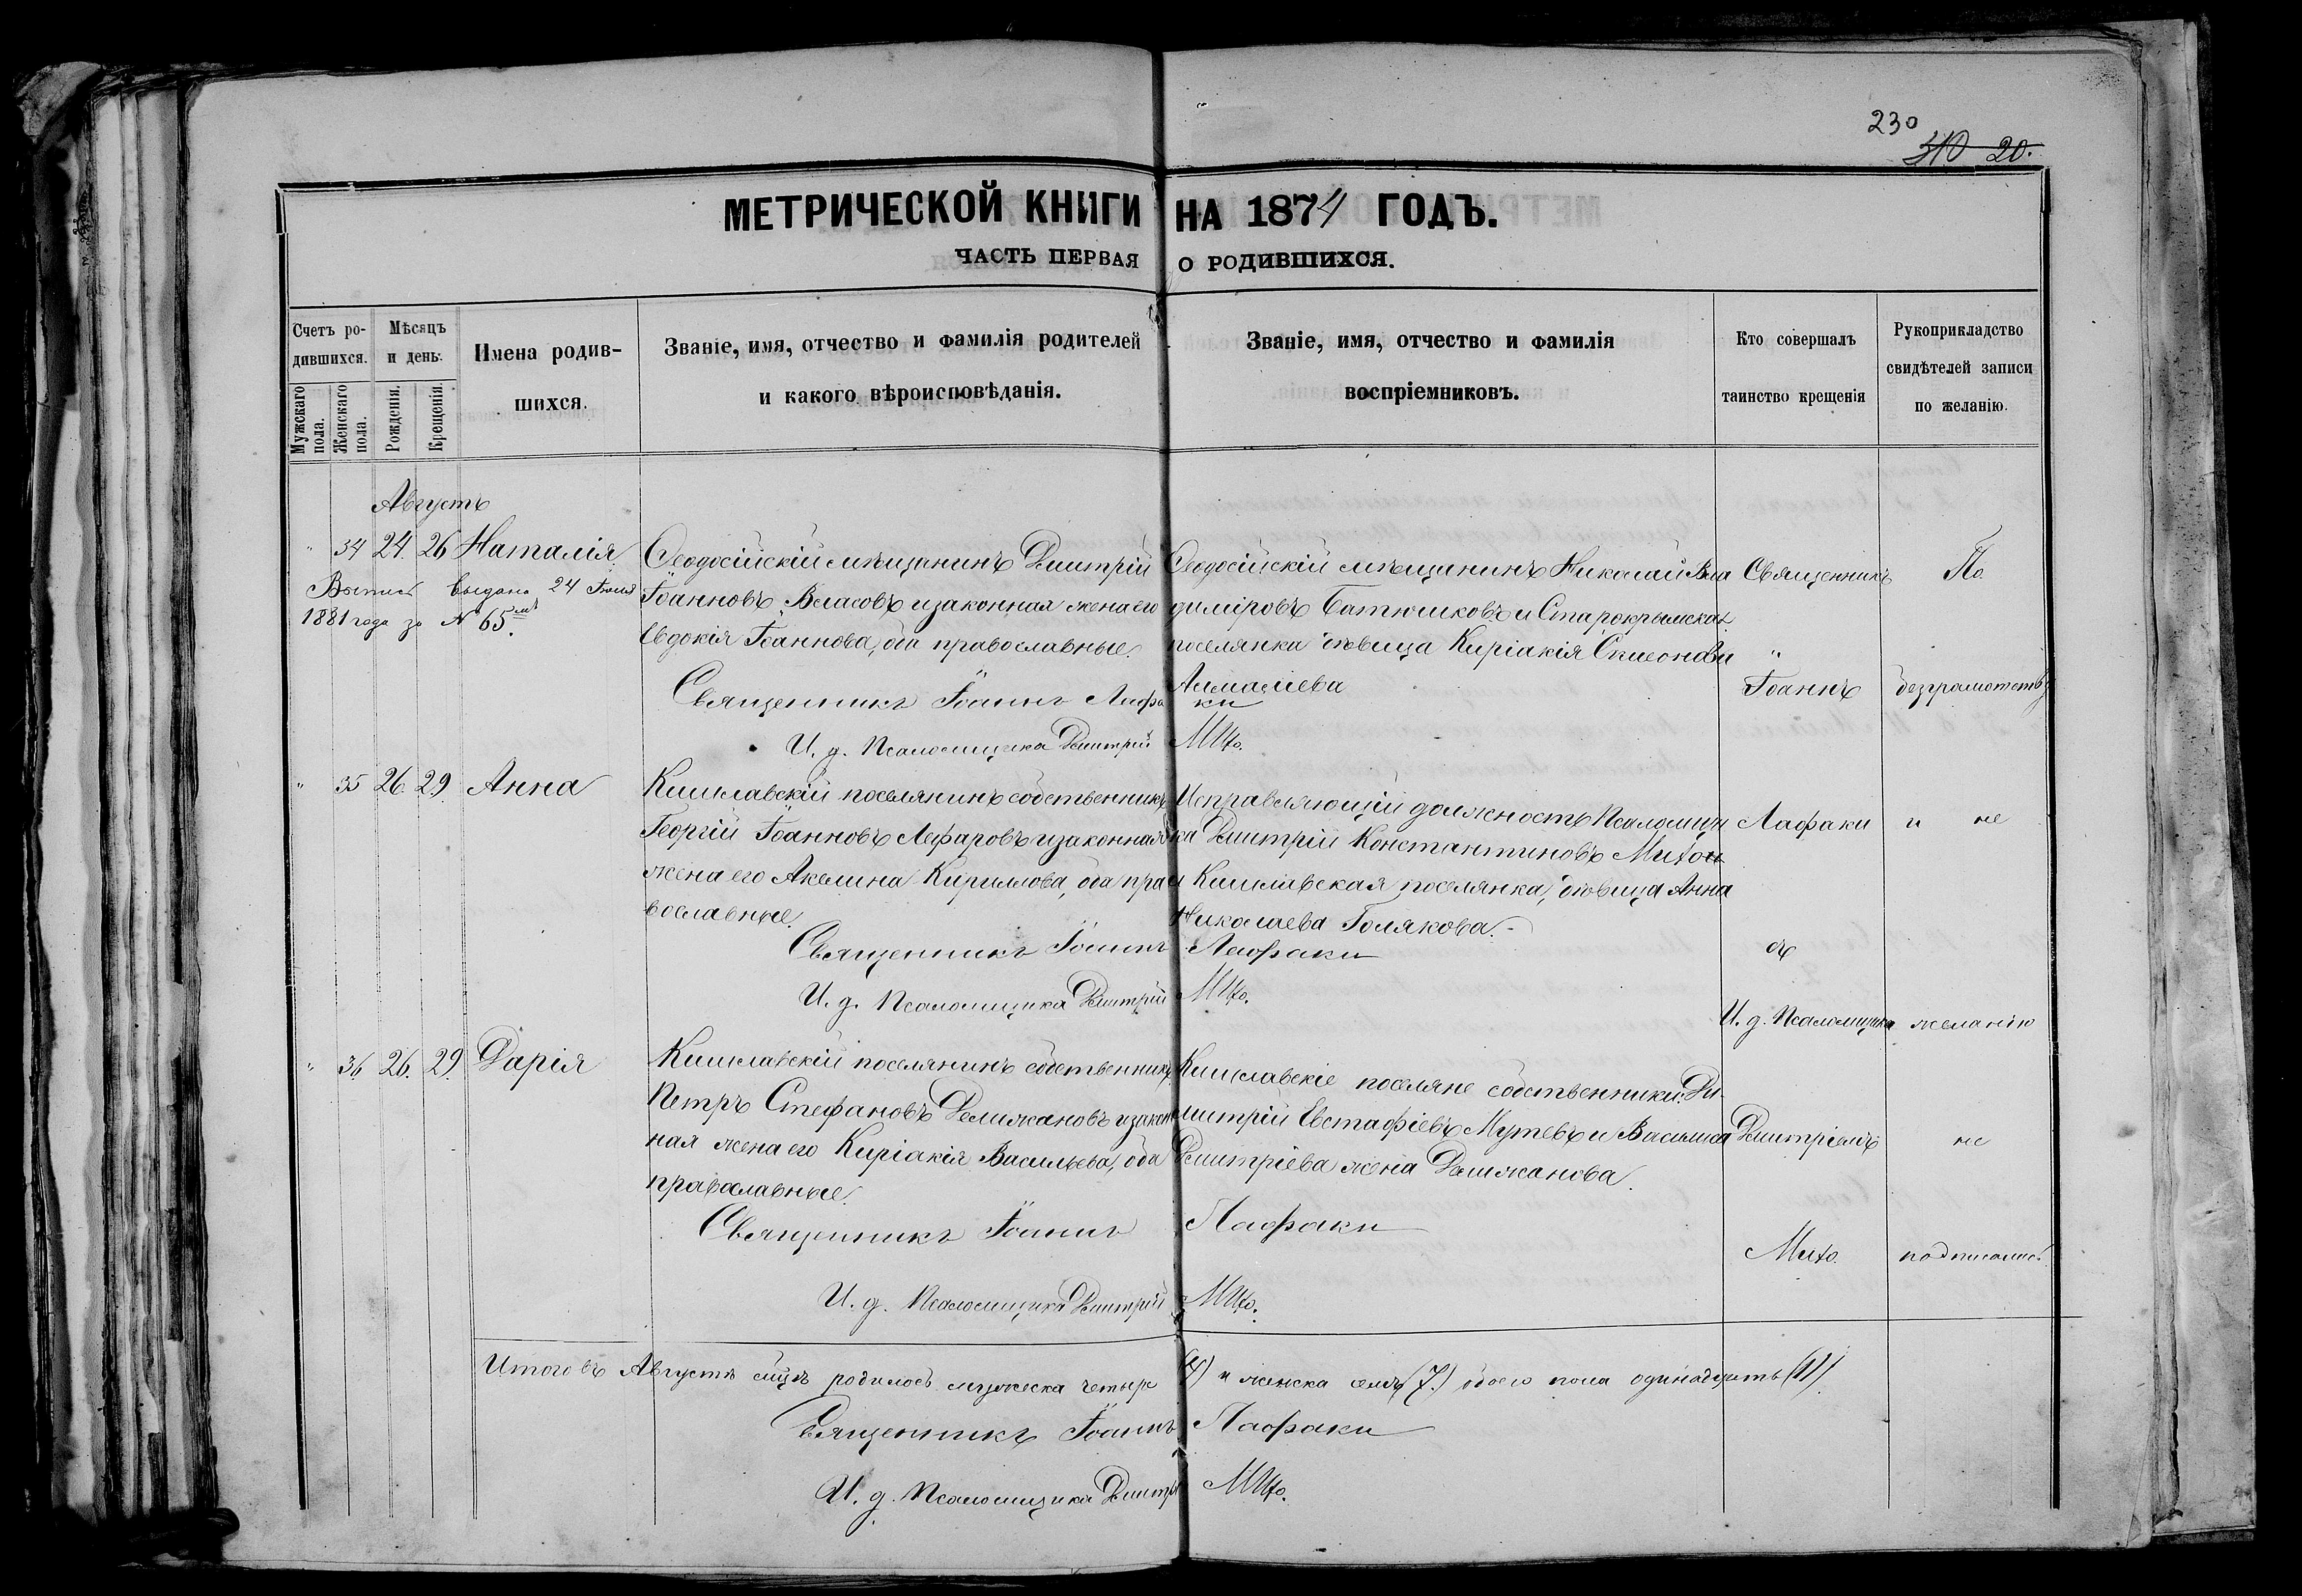 230
310 20.
МЕТРИЧЕСКОЙ КНИГИ НА 1874 ГОДЪ.
ЧАСТЬ ПЕРВАЯ О РОДИВШИХСЯ.
Счетъ ро-
дившихся.
Мужскаго пола.
Женскаго пола.
Мѣсяцъ
и день.
Рожденія.
Крещенія.
Имена родив-
шихся.
Званіе, имя, отчество и фамилія родителей
и какого вѣроисповѣданія.
Званіе, имя, отчество и фамилія
воспріемниковъ.
Кто совершалъ
таинство крещенія
Рукоприкладство
свидѣтелей записи
по желанію.
Августъ
" 34 24. 26 Наталія
Выпись выдана 24 Іюля
1881 года за № 65.
Ѳеодосійскій мѣщанинъ Дмитрій
Іоанновъ Власовъ и законная жена его
Евдокія Іоаннова, оба православные.
Ѳеодосійскій мѣщанинъ Николай Вла
диміровъ Батюшковъ и Старокрымская
поселянка дѣвица Киріакія Симеонова
Алмалиева
Священникъ Іоаннъ Лафаки
И. д. Псаломщика Дмитрій Михо.
" 35 26. 29. Анна
Кишлавскій поселянинъ собственникъ
Георгій Іоанновъ Лефаровъ и законная
жена его Акелина Кириллова, оба пра
вославные.
Исправляющій должность Псаломщи
ка Дмитрій Константиновъ Михо и
Кишлавская поселянка, дѣвица Анна
Николаева Голякова.
Священникъ Іоаннъ Лафаки
И. д. Псаломщика Дмитрій Михо.
" 36. 26. 29. Дарія
Кишлавскій поселянинъ собственникъ
Петръ Стефановъ Делижановъ и закон
ная жена его Киріакія Васильева, оба
православные.
Кишлавскіе поселяне собственники: Ди
митрій Евстафіевъ Мутевъ и Василиса
Дмитріева жена Делижанова.
Священникъ Іоаннъ Лафаки
И. д. Псаломщика Дмитрій Михо.
Священникъ
"
Іоаннъ
Лафаки
съ
И. д. Псаломщика
Дмитріемъ
Михо.
По
безграмотству
и не
желанію
не
подписались.
Итого въ Августѣ мцѣ родилось мужеска четыре (4) и женска семь (7.) обоего пола одинадцать (11)
Священникъ Іоаннъ Лафаки
И. д. Псаломщика Дмитрій Михо.